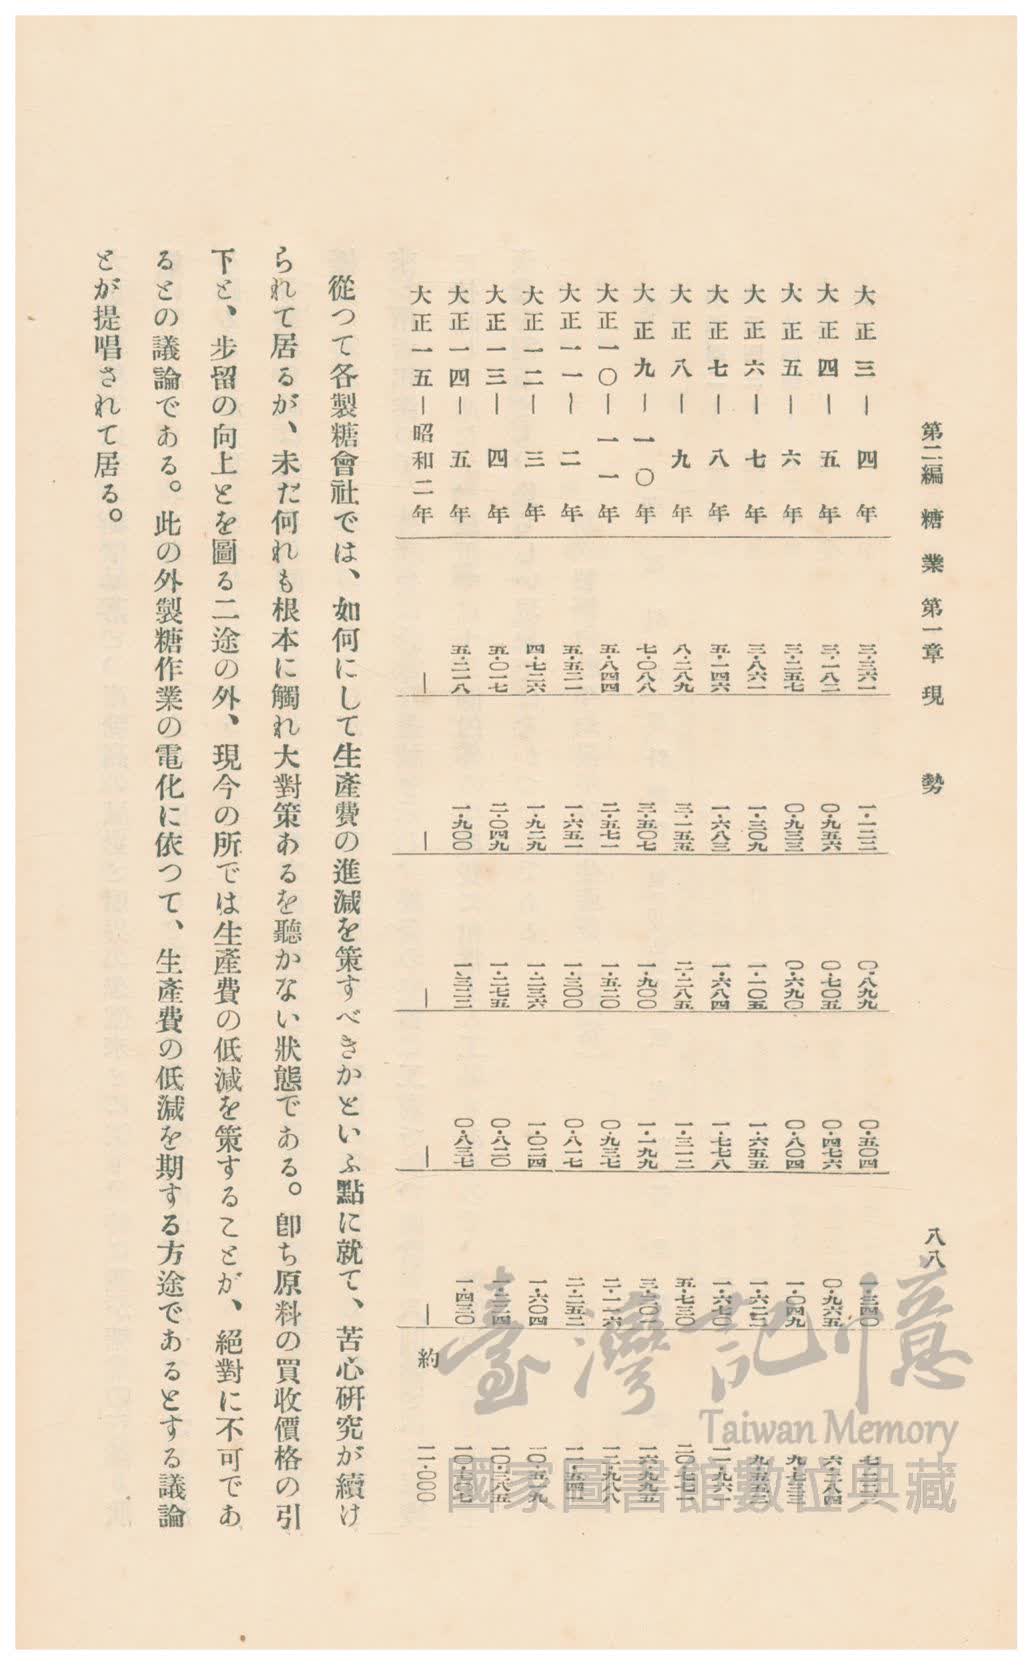 第二編 糖業 第一章 現勢 八八
大正三—四年 三・三六一 一・一二二 〇・八九九 〇・五〇四 一・三四〇 七・二二六
大正四—五年 三・一八二 〇・九五六 〇・七〇五 〇・四七六 〇・九六五 六・二八四
大正五—六年 三・二五七 〇・九三三 〇・六九〇 〇・八〇四 一・〇四九 九・七三三
大正六—七年 三・八六一 一・三〇九 一・一〇五 一・六五五 一・六二三 九・五五三
大正七—八年 五・一四六 一・六八三 一・六八四 一・七七八 一・六七〇 一一・九六一
大正八—九年 八・二八九 三・一五五 二・二八五 一・三一二 五・七三〇 二〇・七七一
大正九—一〇年 七・〇八八 三・五〇七 一・九〇〇 一・一九九 三・三〇一 一六・九九五
大正一〇—一一年 五・八四四 二・五七一 一・五二〇 〇・九三七 二・一一六 一二・九八八
大正一一〜二年 五・五二一 一・六五一 一・三〇〇 〇・八一七 二・二五二 一一・五四一
大正一二—三年 四・七二六 一・九二九 一・二三六 一・〇二四 一・六〇四 一〇・五一九
大正一三—四年 五・〇一七 二・〇四九 一・二七五 〇・八二〇 一・二二四 一〇・三八五
大正一四—五年 五・二一八 一・九〇〇 一・三二二 〇・八三七 一・四三〇 一〇・七〇七
大正一五—昭和二年 — — — — — 約一一・〇〇〇
從つて各製糖會社では、如何にして生產費の進減を策すべきかといふ點に就て、苦心硏究が續け
られて居るが、未だ何れも根本に觸れ大對策あるを聽かない狀態である。卽ち原料の買收價格の引
下と、步留の向上とを圖る二途の外、現今の所では生產費の低減を策することが、絕對に不可であ
るとの議論である。此の外製糖作業の電化に依つて、生產費の低減を期する方途であるとする議論
とが提唱されて居る。
臺灣記憶
Taiwan Memory
國家圖書館數位典藏